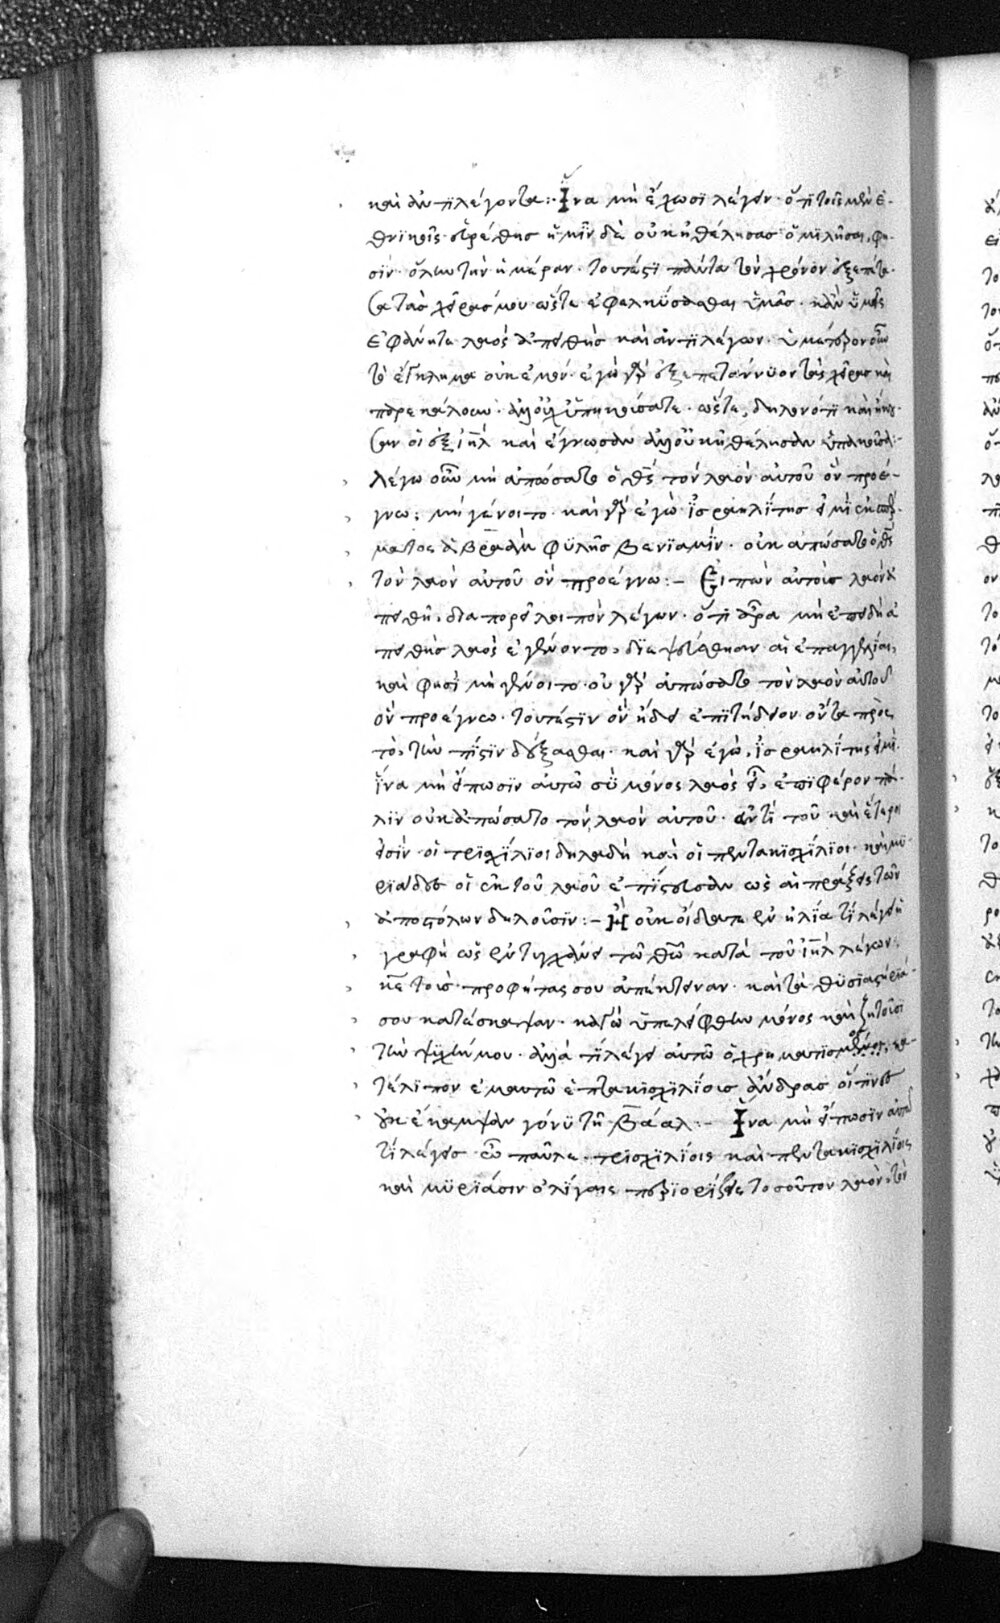 καὶ ἀντιλέγοντα:· Ἵνα μὴ ἔχωσϊ λέγειν· ὅτι τοῖς μὲν ἐ-
θνϊκοῖς εὑρέθης ἡμῖν δὲ οὐκ ἠθέλησας ὁμϊλῆσαι, φη-
σίν· ὅλην τὴν ἡμέραν· τουτέστϊ πάντα τὸν χρόνον ἐξεπέτα-
σα τὰς χεῖράς μου ὥστε ἐφελκύσασθαι ὑμᾶς· κἂν ὑμεῖς
ἐφάνητε λαὸς ἀπειθὴς καὶ ἀντιλέγων· ὑμέτερον οὖν
τὸ ἔγκλημα οὐκ ἐμόν· ἐγὼ γὰρ ἐξεπετάννϋον τὰς χεῖρας καὶ
παρεκάλουν· ἀλλ' οὐχ ὑπηκούσατε· ὥστε, δῆλον ὅτι καὶ ἤκου-
σαν οἱ ἐξ ἰηλ καὶ ἔγνωσαν ἀλλ' οὐκ ἠθέλησαν ὑπακοῦσαι:-
λέγω οὖν μὴ ἀπώσατο ὁ θς τὸν λαὸν αὐτοῦ ὃν προέ-
γνω; μὴ γένοιτο· καὶ γὰρ ἐγὼ ἰσραηλίτης εἰμὶ ἐκ σπέρ-
ματος ἀβραὰμ φϋλῆς βενϊαμίν· οὐκ ἀπώσατο ὁ θς
τὸν λαὸν αὐτοῦ ὃν προέγνω:- Εἰπὼν αὐτοὺς λαὸν ἀ-
πειθῆ, διαπορεῖ λοιπὸν λέγων· ὅτι ἆρα μὴ ἐπειδὴ ἀ-
πειθὴς λαὸς ἐγένοντο, δϊεψεύσθησαν αἱ ἐπαγγελίαι,
καὶ φησὶ μὴ γένοιτο· οὐ γὰρ ἀπώσατο τὸν λαὸν αὐτοῦ
ὃν προέγνω· τουτέστϊν ὃν ᾔδει ἐπϊτήδειον ὄντα πρὸς
τὸ, τὴν πίστϊν δέξασθαι· καὶ γὰρ ἐγὼ, ἰσραηλίτης εἰμί·
ἵνα μὴ εἴπωσϊν αὐτῶ σὺ μόνος λαὸς εἶ, ἐπϊφέρει πά-
λϊν οὐκ ἀπώσατο τὸν λαὸν αὐτοῦ· ἀντὶ τοῦ καὶ ἕτεροι
εἰσίν· οἱ τρϊσχίλϊοι δηλαδὴ καὶ οἱ πεντακϊσχίλϊοι· καὶ μϋ-
ρϊάδες οἱ ἐκ τοῦ λαοῦ ἐπίστευσαν ὡς αἱ πράξεις τῶν
ἀποστόλων δηλοῦσϊν:- Ἢ οὐκ οἴδατε ἐν ἠλία τί λέγει ἡ
γραφὴ ὡς ἐντυγχάνει τῶ θῶ κατὰ τοῦ ἰηλ λέγων;
κε τοὺς προφήτας σου ἀπέκτειναν· καὶ τὰ θϋσϊαστήρϊά
σου κατέσκαψαν· κἀγὼ ὑπελείφθην μόνος καὶ ζητοῦσϊ
τὴν ψϋχήν μου· ἀλλὰ τί λέγει αὐτῶ ὁ χρηματισμός; κα-
τέλϊπον ἐμαυτῶ ἑπτακϊσχϊλίους ἄνδρας οἵτϊνες
οὐκ ἔκαμψαν γόνϋ τῆ βάαλ:- Ἵνα μὴ εἴπωσϊν αὐτῶ
τί λέγεις ὦ παῦλε· τρϊσχϊλίοις καὶ πεντακϊσχϊλίοις
καὶ μϋρϊάσιν ὀλίγαις περϊορίζεις τοσοῦτον λαὸν, τὸν